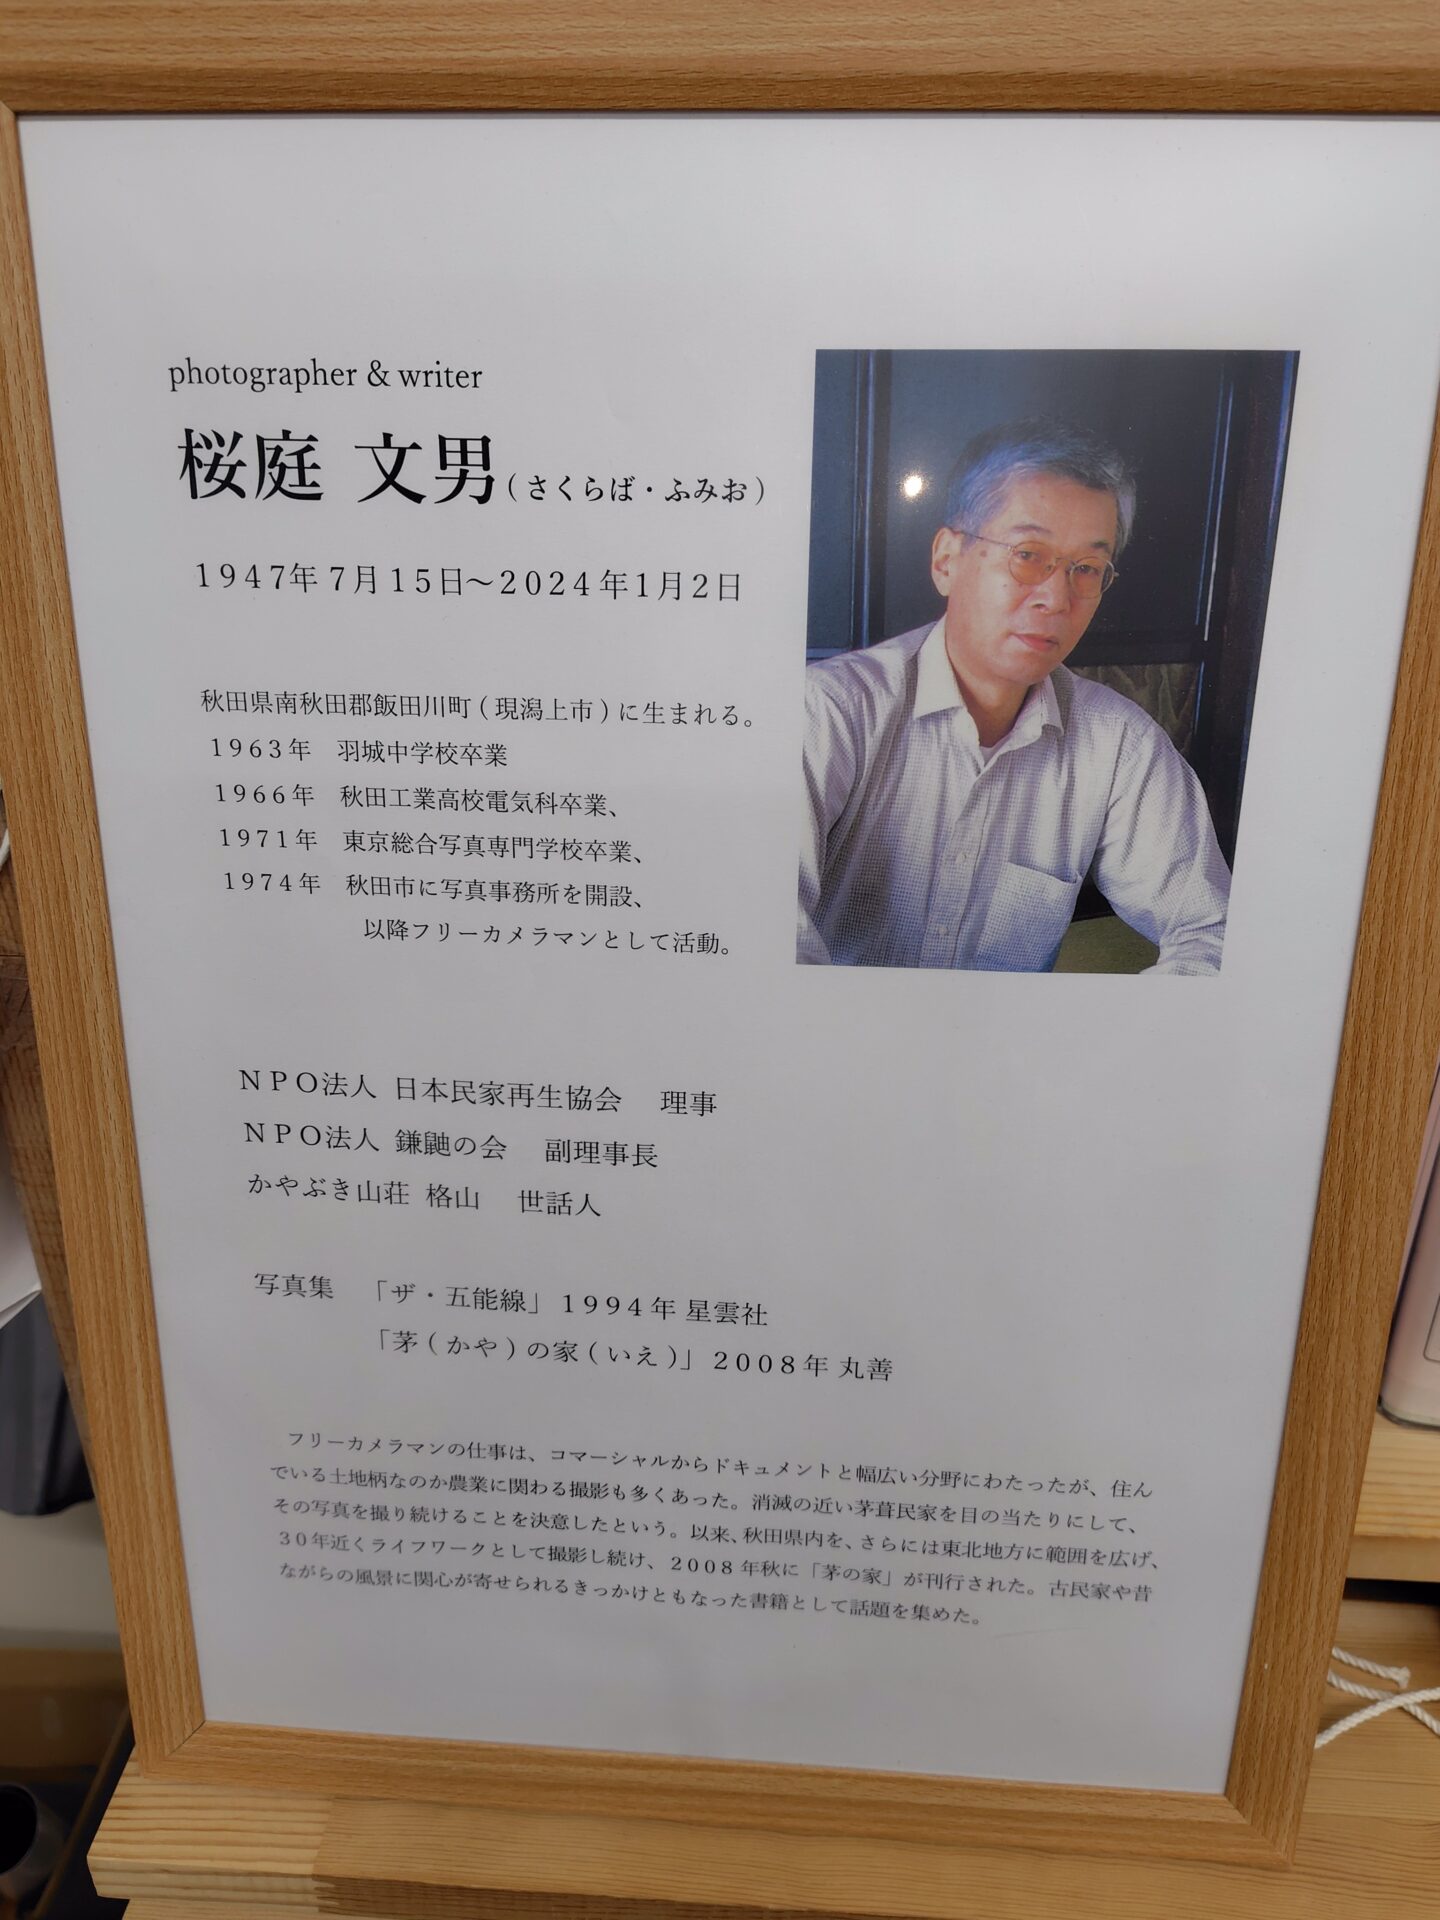 photographer & writer
桜庭 文男(さくらば・ふみお)
1947年7月15日〜2024年1月2日
秋田県南秋田郡飯田川町(現潟上市)に生まれる。
1963年 羽城中学校卒業
1966年 秋田工業高校電気科卒業、
1971年 東京総合写真専門学校卒業、
1974年 秋田市に写真事務所を開設、
以降フリーカメラマンとして活動。
NPO法人 日本民家再生協会 理事
NPO法人 鎌鼬の会 副理事長
かやぶき山荘 格山 世話人
写真集 「ザ・五能線」1994年 星雲社
「茅(かや)の家(いえ)」2008年 丸善
フリーカメラマンの仕事は、コマーシャルからドキュメントと幅広い分野にわたったが、住ん
でいる土地柄なのか農業に関わる撮影も多くあった。消滅の近い茅葺民家を目の当たりにして、
その写真を撮り続けることを決意したという。以来、秋田県内を、さらには東北地方に範囲を広げ、
30年近くライフワークとして撮影し続け、2008年秋に「茅の家」が刊行された。古民家や昔
ながらの風景に関心が寄せられるきっかけともなった書籍として話題を集めた。